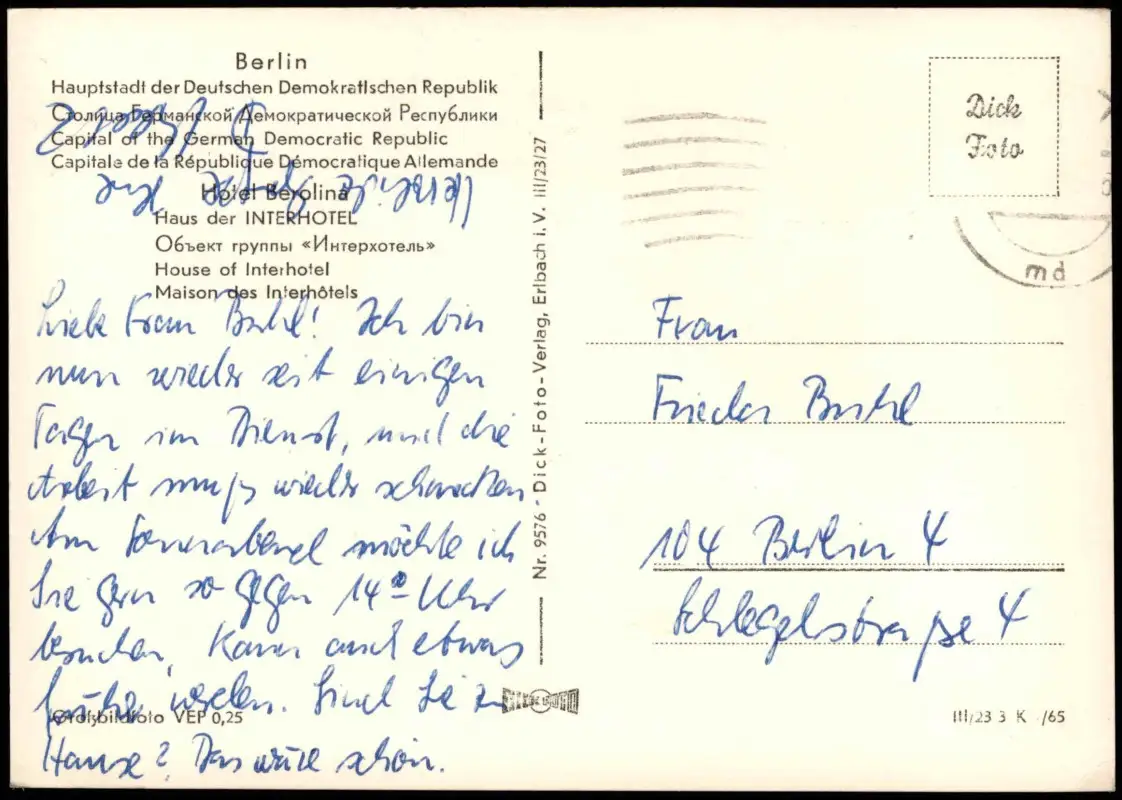 Berlin
Hauptstadt der Deutschen Demokratischen Republik
Столица Германской Демократической Республики
Capital of the German Democratic Republic
Capitale de la République Démocratique Allemande
Hotel Berolina
Haus der INTERHOTEL
Объект группы «Интерхотель»
House of Interhotel
Maison des Interhôtels
Liebe Frau! Ich bin
nun wieder seit einigen
Tagen im Dienst, und die
Arbeit muß wieder schmecken
Am Sonnabend möchte ich
Sie gern so gegen 14⁰⁰ Uhr
besuchen, Kann auch etwas
früher werden. Sind Sie zu
Hause? Das wäre schön.
Herzliche Grüße Ihre
Echtfoto VEP 0,25
Nr. 9576 · Dick-Foto-Verlag, Erlbach i. V. III/23/27
Dick
Foto
md
Frau
Frieda
104 Berlin 4
Schlegelstraße 4
III/23 3 K /65